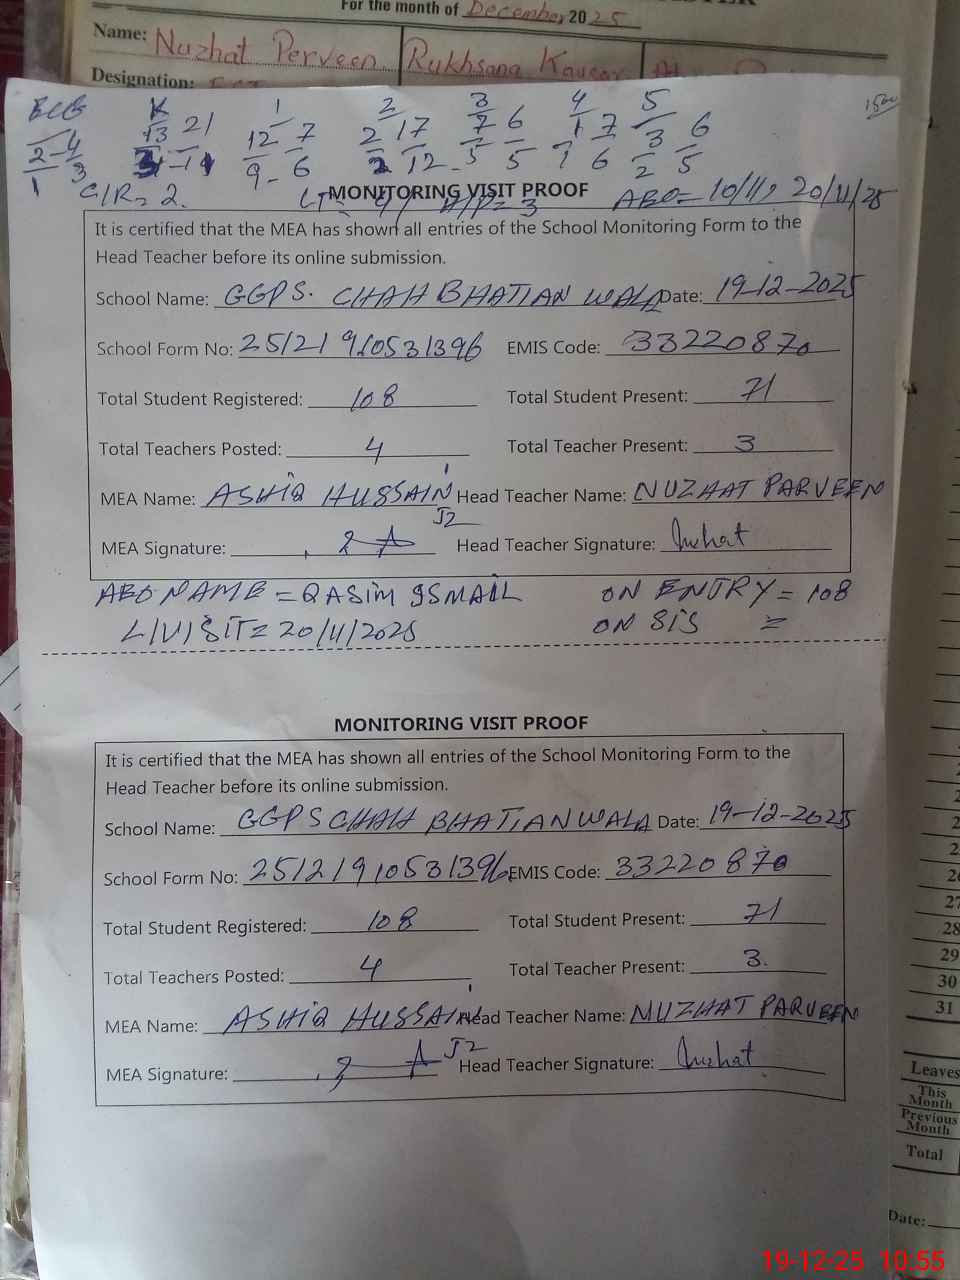 For the month of December 2025
Name: Nuzhat Perveen Rukhsana Kausar
Designation:
ECE K 1 2 3 4 5
2-4 13 21 12 7 2 17 7 6 1 7 3 6
1 3 9- 6 2 12 5 5 1 6 2 5
C/R= 2. 3 AEO= 10/11, 20/11/25
MONITORING VISIT PROOF
It is certified that the MEA has shown all entries of the School Monitoring Form to the
Head Teacher before its online submission.
School Name: GGPS. CHAH BHATIAN WALA Date: 19-12-2025
School Form No: 25121910531396 EMIS Code: 33220870
Total Student Registered: 108 Total Student Present: 71
Total Teachers Posted: 4 Total Teacher Present: 3
MEA Name: ASHIQ HUSSAIN Head Teacher Name: NUZHAT PARVEEN
J2
MEA Signature: Head Teacher Signature: Nuzhat
AEO NAME = QASIM ISMAIL ON ENTRY = 108
L/VISIT= 20/11/2025 ON SIS =
MONITORING VISIT PROOF
It is certified that the MEA has shown all entries of the School Monitoring Form to the
Head Teacher before its online submission.
School Name: GGPS CHAH BHATIAN WALA Date: 19-12-2025
School Form No: 25121910531396 EMIS Code: 33220870
Total Student Registered: 108 Total Student Present: 71
Total Teachers Posted: 4 Total Teacher Present: 3.
MEA Name: ASHIQ HUSSAIN Head Teacher Name: NUZHAT PARVEEN
J2
MEA Signature: Head Teacher Signature: Nuzhat
27
28
29
30
31
Leaves
This
Month
Previous
Month
Total
Date:
19-12-25 10:55